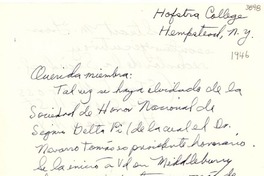 3898
Hofstra College
Hempstead, N.Y.
1946
Querida miembra:
Tal vez se haya olvidado de la
Sociedad de Honor Nacional de
Sigma Delta Pi (de la cual el Dr.
Navarro Tomás es presidente honorario.
Se la inició a Vd en Middlebury